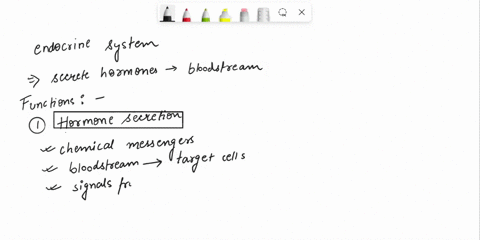 endocrine system
⇒ secrete hormones → bloodstream
Functions: -
① Hormone secretion
✓ chemical messengers
✓ bloodstream → target cells
✓ signals fr